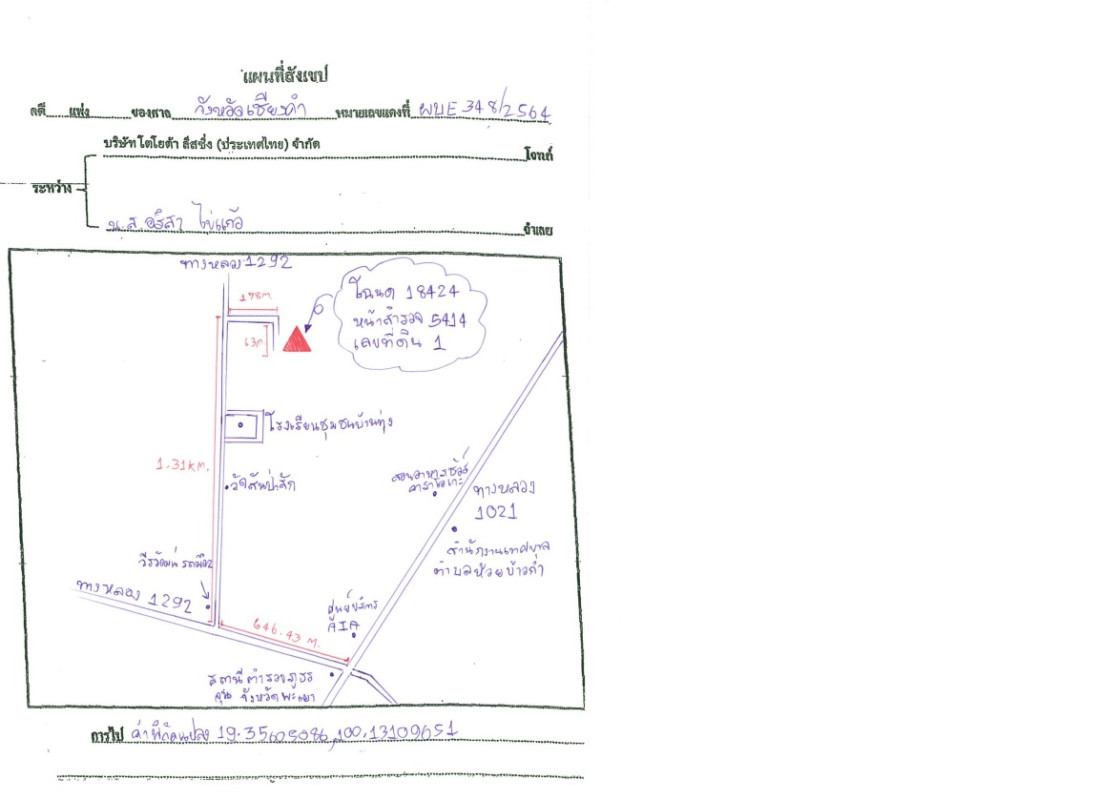 แผนที่สังเขป
คดี แพ่ง ของศาล จังหวัดเชียงคำ หมายเลขแดงที่ ผบE 348/2564
บริษัท โตโยต้า ลีสซิ่ง (ประเทศไทย) จำกัด โจทก์
ระหว่าง
น.ส.อริสา ไข่แก้ว จำเลย
ทางหลวง 1292
178m.
โฉนด 18424
หน้าสำรวจ 5414
เลขที่ดิน 1
63m
โรงเรียนชุมชนบ้านทุ่ง
1.31km.
วัดสัพป่าสัก
คาราโอเกะ
ทางหลวง
1021
สำนักงานเทศบาล
ตำบลห้วยข้าวก่ำ
รถมือ2
ทางหลวง 1292
ศูนย์บริการ
AIA
646.43 m.
สถานีตำรวจภูธร
จุน จังหวัดพะเยา
การไป ค่าพิกัดแปลง 19.35605086,100.13109651